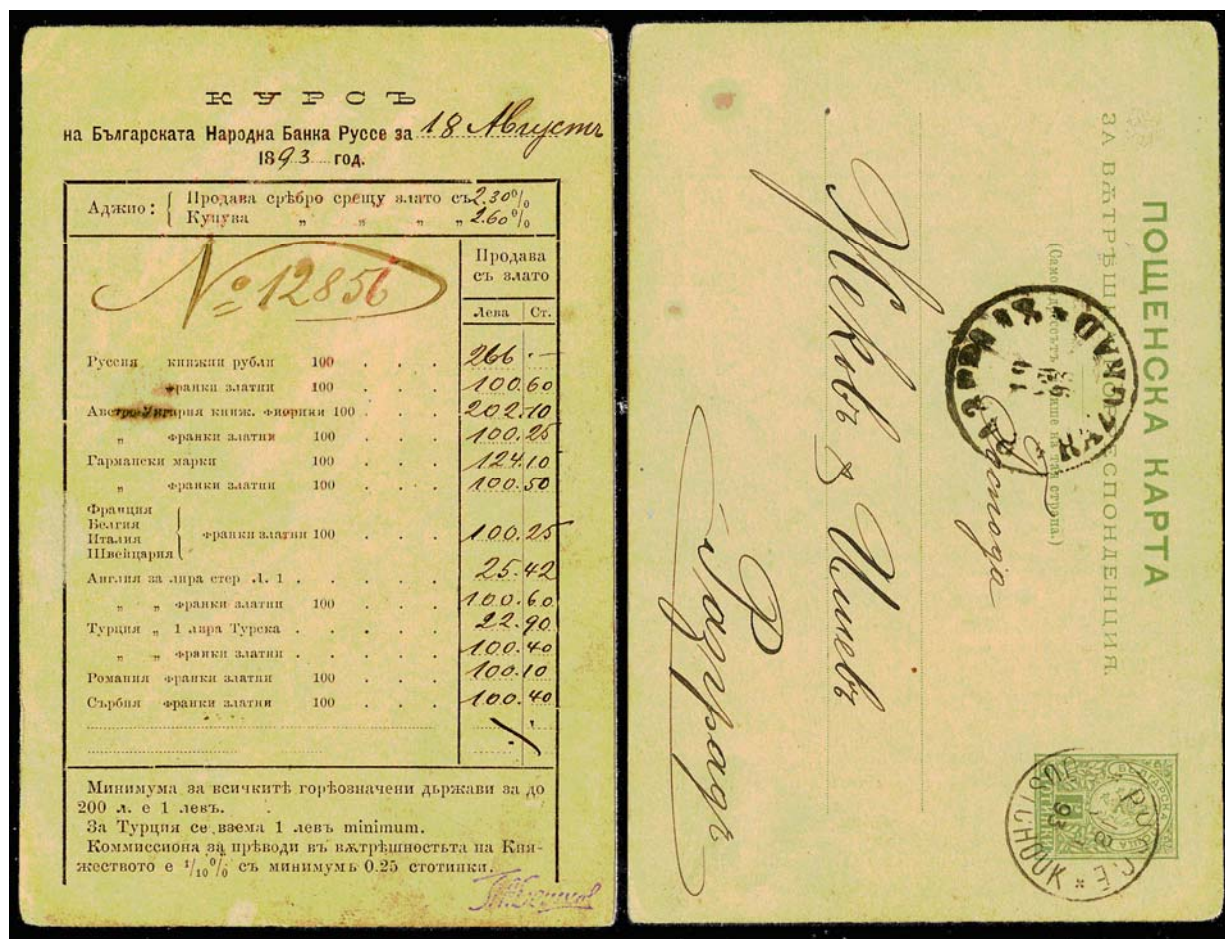 КУРСЪ
на Българската Народна Банка Руссе за 18 Августъ
1893 год.
Аджио: Продава срѣбро срещу злато съ 2.30%
Купува „ „ „ „ 2.60%
№ 12856
Продава
съ злато
Лева Ст.
Руссия книжни рубли 100 . . . 266 . —
франки златни 100 . . . 100.60
Австро-Унгария книж. фиорини 100 . . . 202.10
„ франки златни 100 . . . 100.25
Гармански марки 100 . . . 124.10
„ франки златни 100 . . . 100.50
Франция
Белгия
Италия
Швейцария
франки златни 100 . . . 100.25
Англия за лира стер Л. 1 . . . . 25.42
„ „ франки златни 100 . . . 100.60
Турция „ 1 лира Турска . . . . . 22.90
„ „ франки златни . . . . . 100.40
Романия франки златни 100 . . . 100.10
Сърбия франки златни 100 . . . 100.40
Минимума за всичкитѣ горѣозначени държави за до
200 л. е 1 левъ.
За Турция се взема 1 левъ minimum.
Коммиссиона за прѣводи въ вѫтрѣшностьта на Кня-
жеството е 1/10% съ минимумъ 0.25 стотинки.
ПОЩЕНСКА КАРТА
ЗА ВѪТРѢШНА КОРРЕСПОНДЕНЦИЯ
(Само адрессътъ се пише на тая страна.)
RAZGRAD
Господа
Жековъ & Илиевъ
Разградъ
РУССЕ
18
93
ROUSTCHOUK
БЪЛГАРСКА